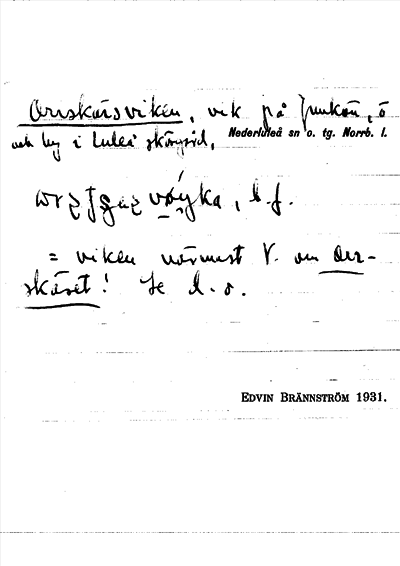 Orrskärsviken, vik på Junkön, ö
och by i Luleå skärgård, Nederluleå sn o. tg. Norrb. l.
, b. f.
= viken närmast V. om Orr-
skäret! Se d. o.
EDVIN BRÄNNSTRÖM 1931.